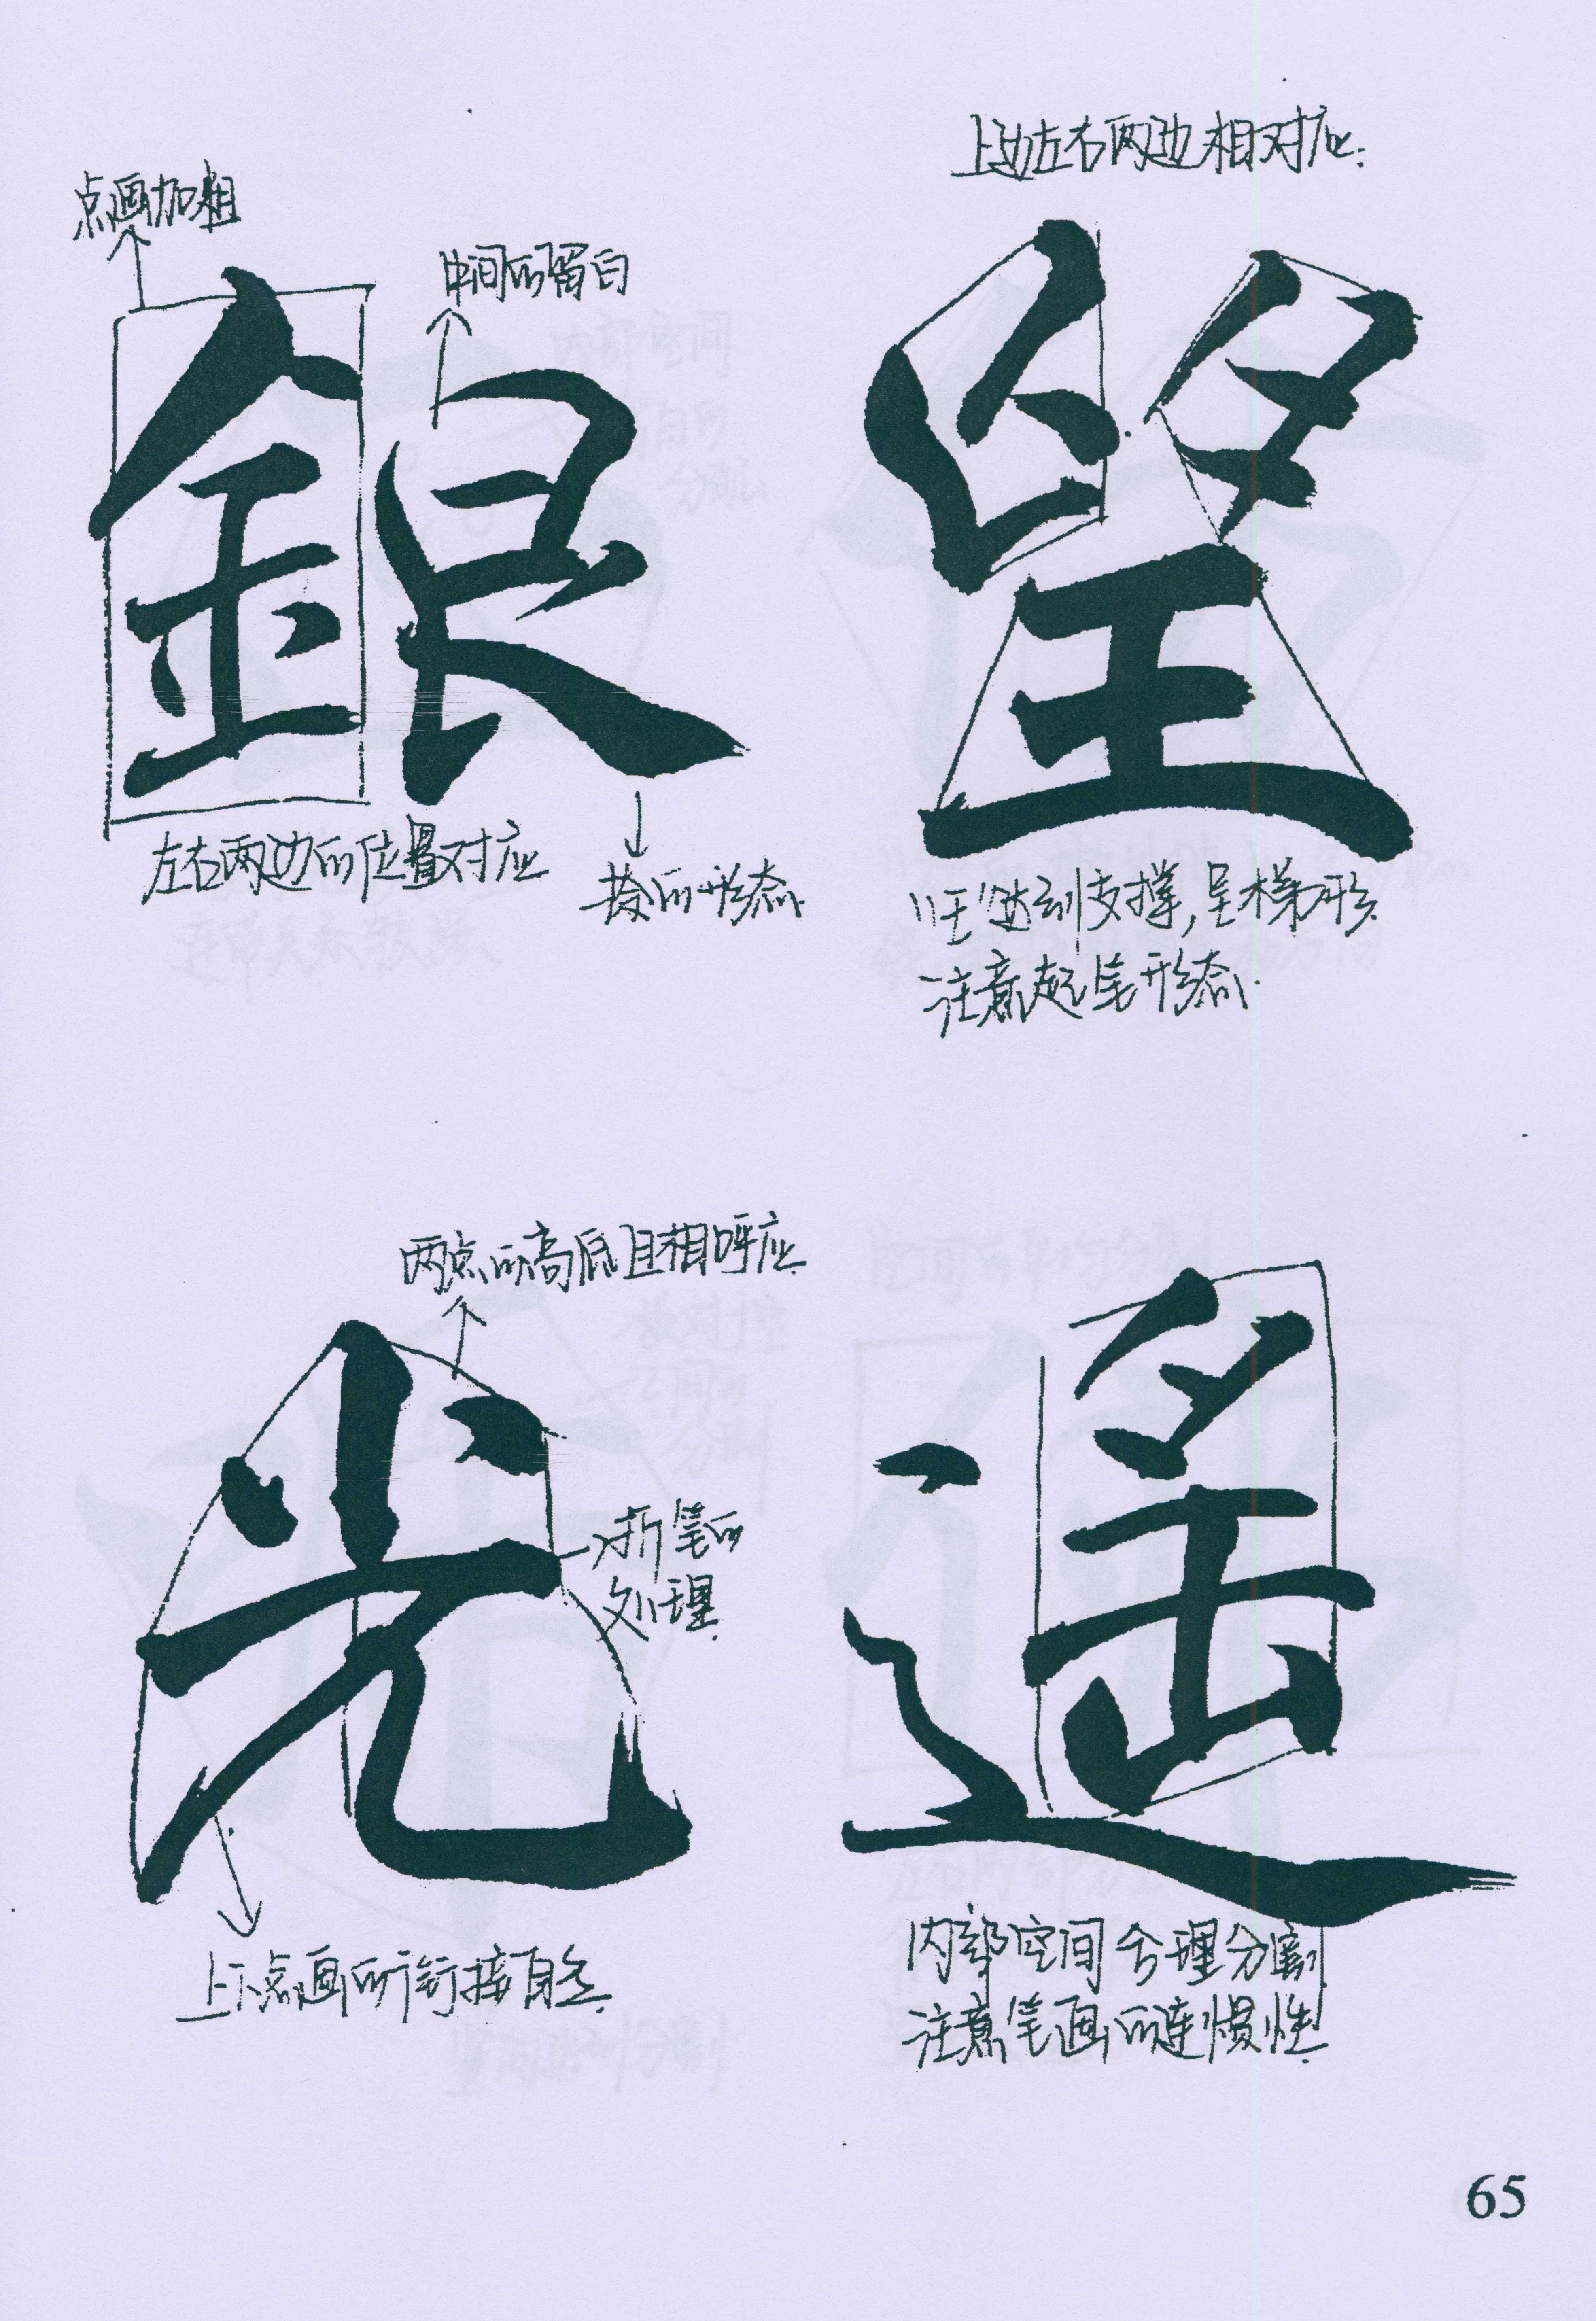 上边左右两边相对应.
点画加粗
中间的留白
銀
望
左右两边的位置对应
捺的形态.
"王"达到支撑,呈梯形.
注意起笔形态.
两点的高低且相呼应.
光
遥
折笔的
处理.
上下点画的衔接自然.
内部空间合理分割
注意笔画的连惯性.
65